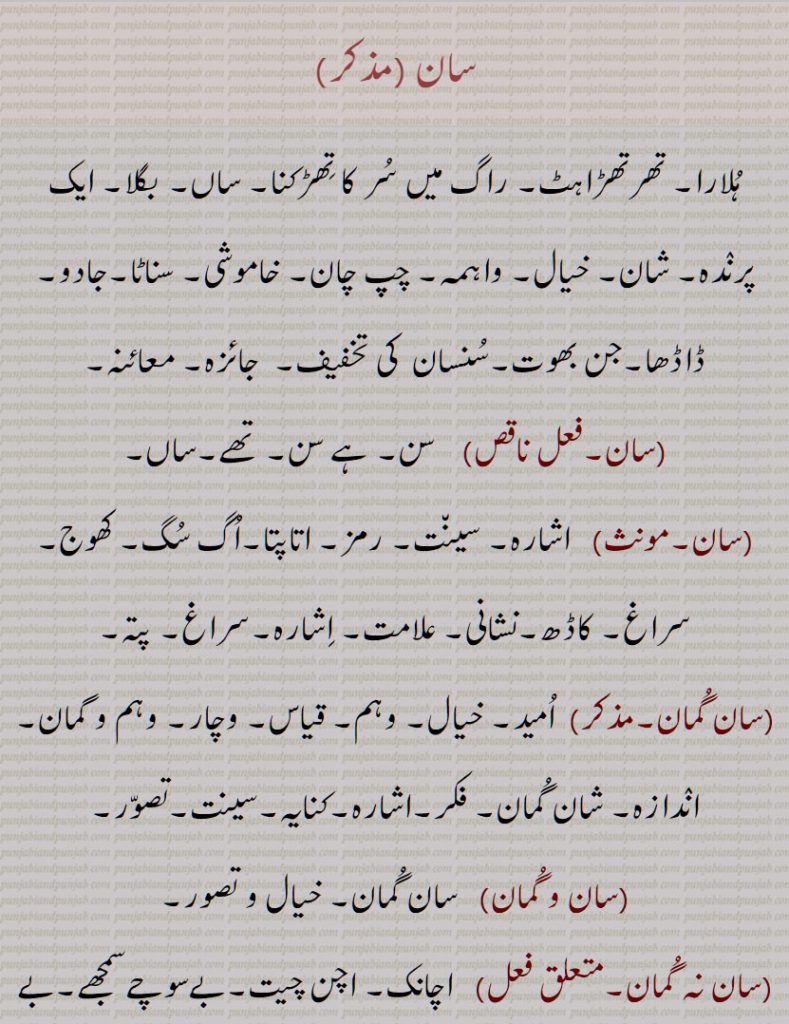 سان (مذکر)
ہُلارا۔ تھرتھڑاہٹ۔ راگ میں سُر کا تِھڑکنا۔ ساں۔ بگلا۔ ایک
پرنْدہ۔ شان۔ خیال۔ واہمہ۔ چپ چان۔ خاموشی۔ سناٹا۔جادو۔
ڈاڈھا۔جن بھوت۔سُنسان کی تخفیف۔ جائزہ۔ معائنہ۔
(سان۔فعل ناقص) سن۔ ہے سن۔ تھے۔ساں۔
(سان۔مونث) اشارہ۔ سینّت۔ رمز۔ اتاپتا۔اُگ سُگ۔ کھوج۔
سراغ۔ کاڈھ۔نشانی۔ علامت۔ اِشارہ۔سراغ۔ پتہ۔
(سان گُمان۔مذکر) اُمید۔ خیال۔ وہم۔ قیاس۔ وچار۔ وہم و گمان۔
انْدازہ۔ شان گُمان۔ فکر۔اشارہ۔کنایہ۔سینت۔تصوّر۔
(سان و گُمان) سان گُمان۔ خیال و تصور۔
(سان نہ گُمان۔متعلق فعل) اچانک۔ اچن چیت۔بےسوچے سمجھے۔بے